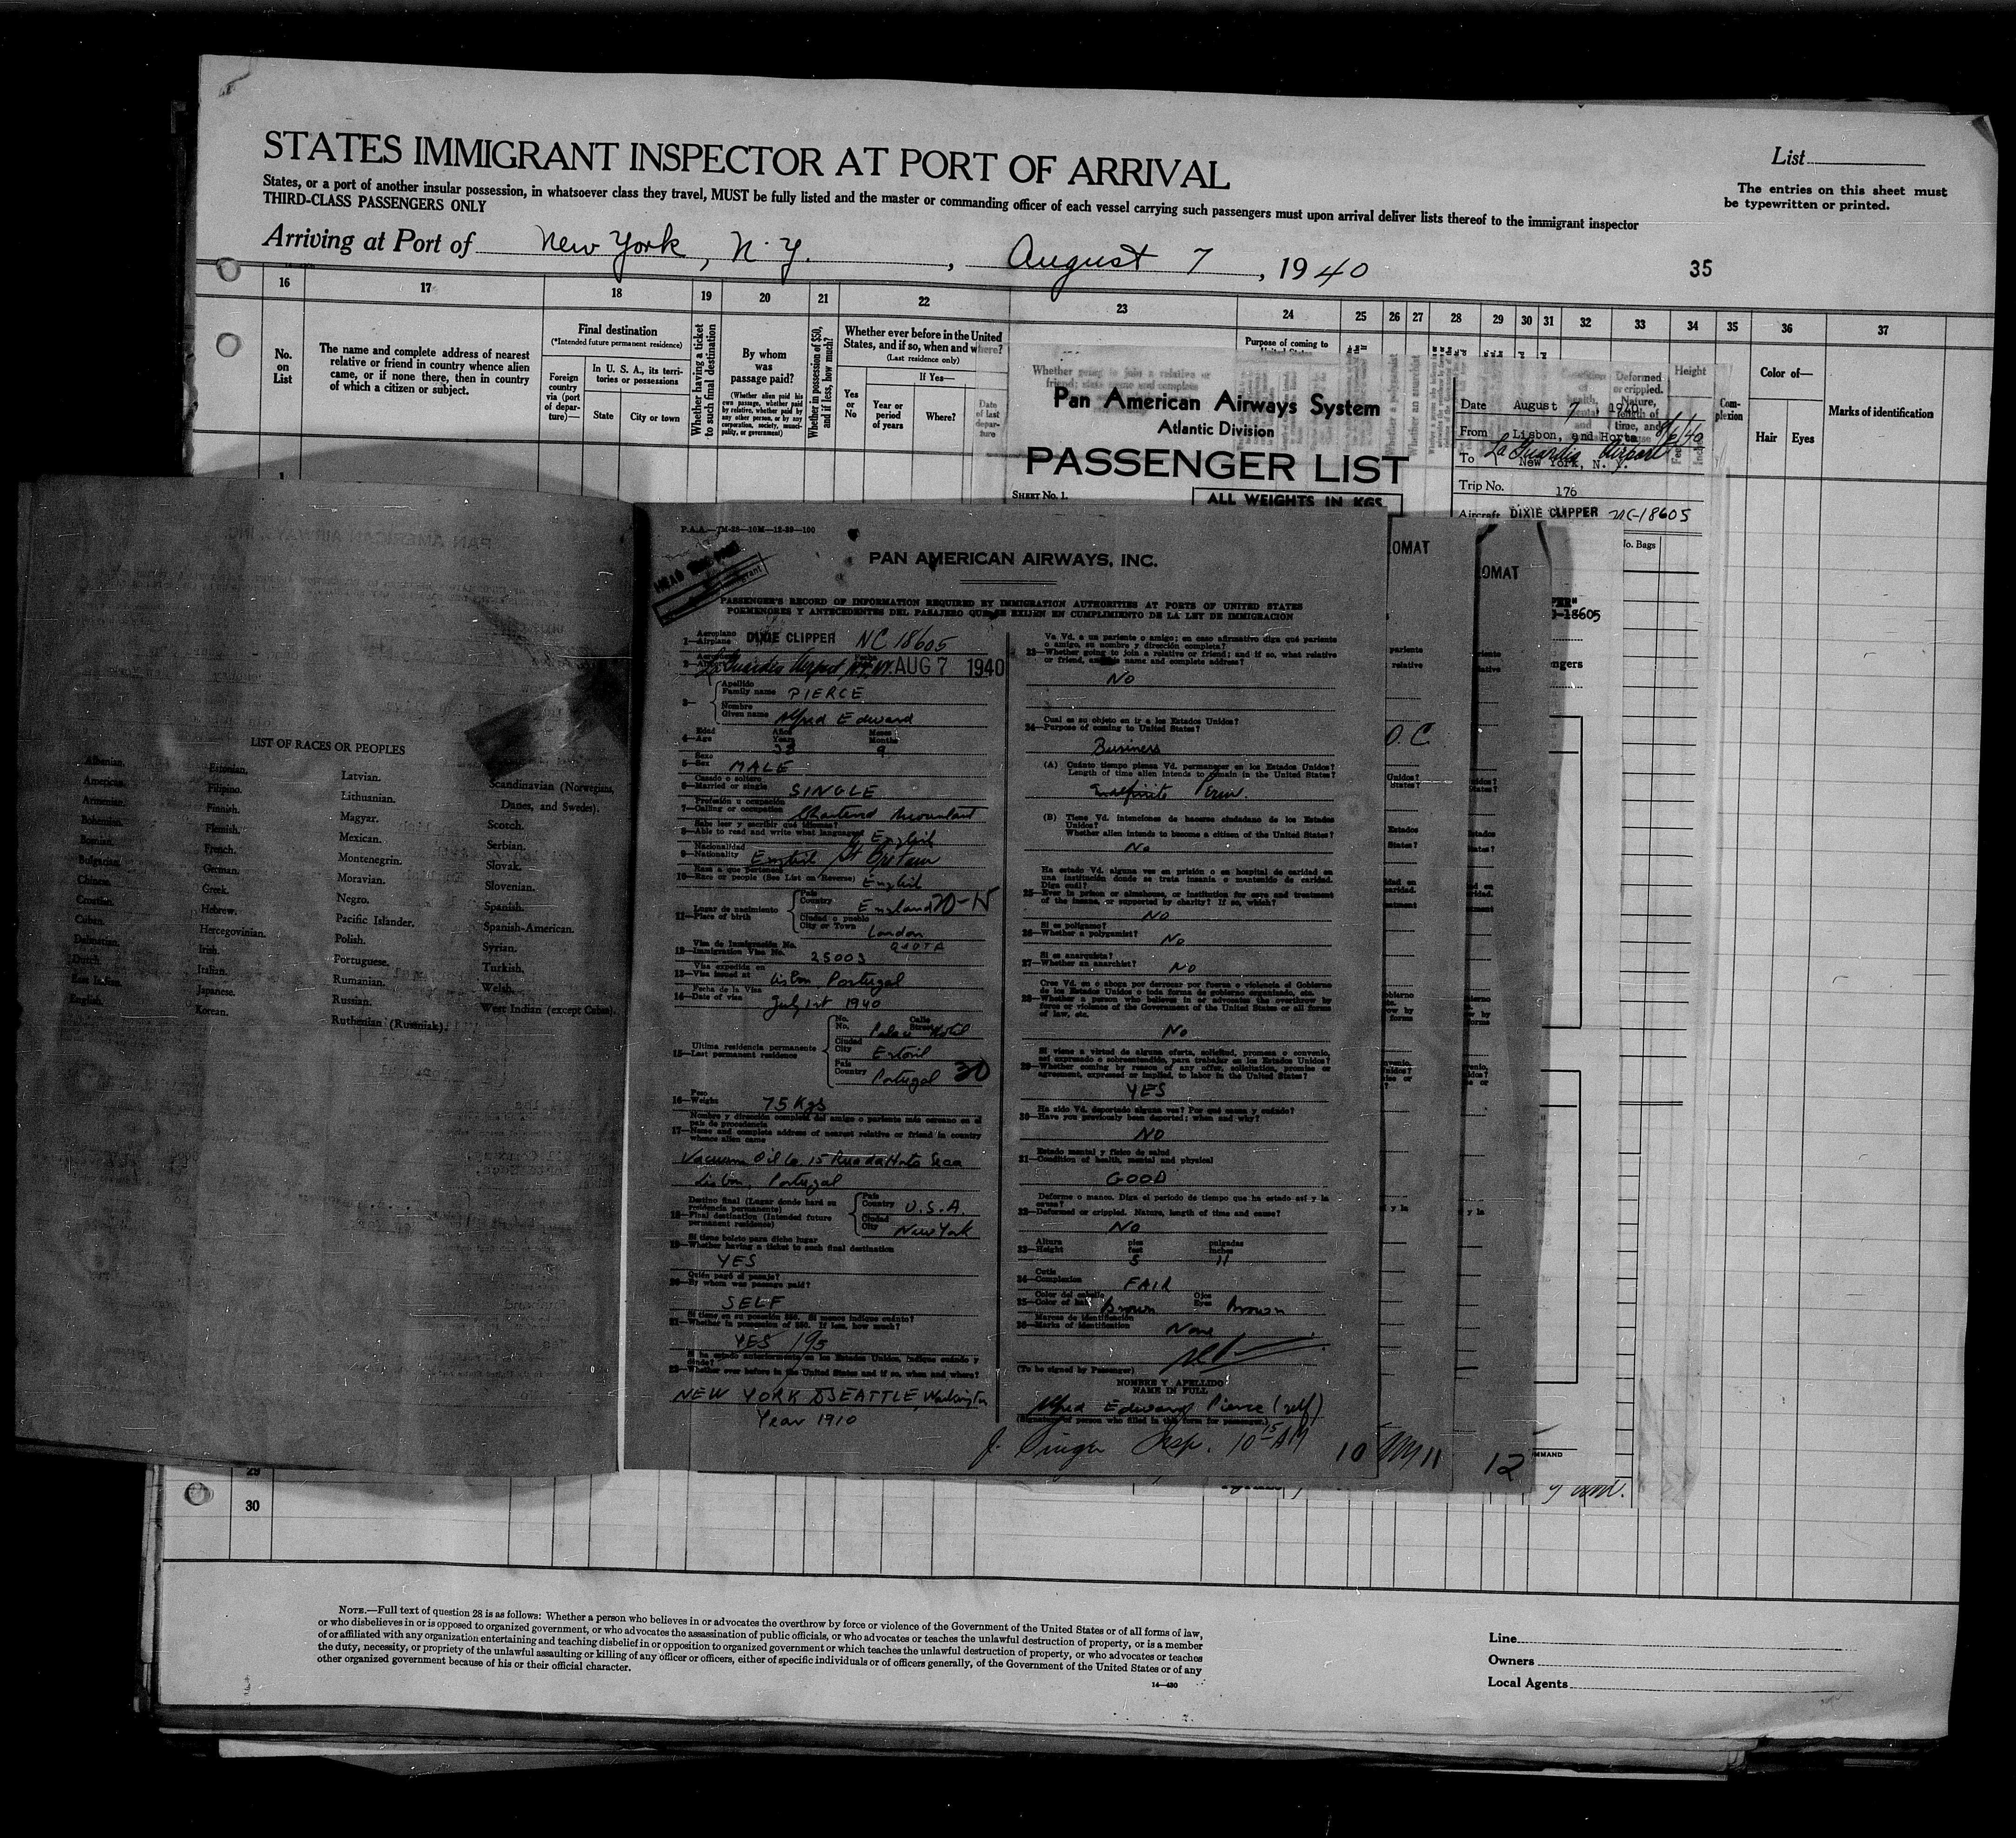 STATES IMMIGRANT INSPECTOR AT PORT OF ARRIVAL
List
States, or a port of another insular possession, in whatsoever class they travel, MUST be fully listed and the master or commanding officer of each vessel carrying such passengers must upon arrival deliver lists thereof to the immigrant inspector
THIRD-CLASS PASSENGERS ONLY
The entries on this sheet must
be typewritten or printed.
Arriving at Port of New York, N. Y., August 7, 1940
35
16 17 18 19 20 21 22 23 24 25 26 27 28 29 30 31 32 33 34 35 36 37
No.
on
List
The name and complete address of nearest
relative or friend in country whence alien
came, or if none there, then in country
of which a citizen or subject.
Final destination
(*Intended future permanent residence)
Foreign
country
via (port
of depar-
ture)—
In U. S. A., its terri-
tories or possessions
State
City or town
Whether having a ticket
to such final destination
By whom
was
passage paid?
(Whether alien paid his
own passage, whether paid
by relative, whether paid by
any other person, or by any
corporation, society, munici-
pality, or government)
Whether in possession of $50,
and if less, how much?
Whether ever before in the United
States, and if so, when and where?
(Last residence only)
Yes
or
No
If Yes—
Year or
period
of years
Where?
Date
of last
depar-
ture
Whether going to join a relative or
friend; state name and complete
Purpose of coming to
United States
Deformed
or crippled.
Nature,
length of
time, and
Height
Com-
plexion
Color of—
Hair
Eyes
Marks of identification
Pan American Airways System
Atlantic Division
PASSENGER LIST
SHEET No. 1.
ALL WEIGHTS IN KGS
Date August 7, 1940
From Lisbon, and Horta 8/6/40
To La Guardia Airport
New York, N. Y.
Trip No. 176
Aircraft DIXIE CLIPPER NC-18605
No. Bags
LIST OF RACES OR PEOPLES
Albanian.
American.
Armenian.
Bohemian.
Bosnian.
Bulgarian.
Chinese.
Croatian.
Cuban.
Dalmatian.
Dutch.
East Indian.
English.
Estonian.
Filipino.
Finnish.
Flemish.
French.
German.
Greek.
Hebrew.
Hercegovinian.
Irish.
Italian.
Japanese.
Korean.
Latvian.
Lithuanian.
Magyar.
Mexican.
Montenegrin.
Moravian.
Negro.
Pacific Islander.
Polish.
Portuguese.
Rumanian.
Russian.
Ruthenian (Russniak).
Scandinavian (Norwegians,
Danes, and Swedes).
Scotch.
Serbian.
Slovak.
Slovenian.
Spanish.
Spanish-American.
Syrian.
Turkish.
Welsh.
West Indian (except Cuban).
P.A.A.—TM-28—10M—12-39—100
PAN AMERICAN AIRWAYS, INC.
PASSENGER'S RECORD OF INFORMATION REQUIRED BY IMMIGRATION AUTHORITIES AT PORTS OF UNITED STATES
PORMENORES Y ANTECEDENTES DEL PASAJERO QUE SE EXIJEN EN CUMPLIMIENTO DE LA LEY DE IMMIGRACION
Aeroplano
1—Airplane DIXIE CLIPPER NC 18605
La Guardia Airport, N.Y. AUG 7 1940
3—
Apellido
Family name PIERCE
Nombre
Given name Alfred Edward
Edad
4—Age
Años
Years 38
Meses
Months 9
Sexo
5—Sex MALE
Casado o soltero
6—Married or single SINGLE
Profesión u ocupación
7—Calling or occupation Chartered Accountant
Sabe leer y escribir qué idiomas?
8—Able to read and write what languages English
Nacionalidad
9—Nationality English Gt Britain
Raza a que pertenece
10—Race or people (See List on Reverse) English
Lugar de nacimiento
11—Place of birth
País
Country England
Ciudad o pueblo
City or Town London
Visa de Inmigración No.
12—Immigration Visa No. 25003 QUOTA
Visa expedida en
13—Visa issued at Lisbon, Portugal
Fecha de la Visa
14—Date of visa July 1st 1940
Ultima residencia permanente
15—Last permanent residence
No.
No.
Calle
Street Palace Hotel
Ciudad
City Estoril
País
Country Portugal 30
Peso
16—Weight 75 Kgs
Nombre y dirección completa del amigo o pariente más cercano en el
país de procedencia
17—Name and complete address of nearest relative or friend in country
whence alien came
Vacuum Oil Co. 15 Rua da Horta Seca
Lisbon, Portugal
Destino final (Lugar donde hará su
residencia permanente)
18—Final destination (Intended future
permanent residence)
País
Country U.S.A.
Ciudad
City New York
Si tiene boleto para dicho lugar
19—Whether having a ticket to such final destination
YES
Quién pagó el pasaje?
20—By whom was passage paid?
SELF
Si tiene en su posesión $50. Si menos indique cuánto?
21—Whether in possession of $50. If less, how much?
YES 195
Si ha estado anteriormente en los Estados Unidos, indique cuándo y
dónde?
22—Whether ever before in the United States and if so, when and where?
NEW YORK & SEATTLE, Washington
Year 1910
Va Vd. a un pariente o amigo; en caso afirmativo diga qué pariente
o amigo, su nombre y dirección completa?
23—Whether going to join a relative or friend; and if so, what relative
or friend, and his name and complete address?
No
Cuál es su objeto en ir a los Estados Unidos?
24—Purpose of coming to United States?
Business
(A) Cuánto tiempo piensa Vd. permanecer en los Estados Unidos?
Length of time alien intends to remain in the United States?
Indefinite Perm.
(B) Tiene Vd. intenciones de hacerse ciudadano de los Estados
Unidos?
Whether alien intends to become a citizen of the United States?
No
Ha estado Vd. alguna vez en prisión o en hospital de caridad en
una institución donde se trata insania o mantenido de caridad.
Diga cuál?
25—Ever in prison or almshouse, or institution for care and treatment
of the insane, or supported by charity? If so, which?
NO
Si es polígamo?
26—Whether a polygamist?
No
Si es anarquista?
27—Whether an anarchist? NO
Cree Vd. en o aboga por derrocar por fuerza o violencia el Gobierno
de los Estados Unidos o toda forma de gobierno organizado, etc.
28—Whether a person who believes in or advocates the overthrow by
force or violence of the Government of the United States or all forms
of law, etc.
No
Si viene a virtud de alguna oferta, solicitud, promesa o convenio,
así expresado o sobreentendido, para trabajar en los Estados Unidos?
29—Whether coming by reason of any offer, solicitation, promise or
agreement, expressed or implied, to labor in the United States?
YES
Ha sido Vd. deportado alguna vez? Por qué causa y cuándo?
30—Have you previously been deported; when and why?
NO
Estado mental y físico de salud
31—Condition of health, mental and physical
GOOD
Deforme o manco. Diga el período de tiempo que ha estado así y la
causa?
32—Deformed or crippled. Nature, length of time and cause?
NO
Altura
33—Height
pies
feet
5
pulgadas
inches
11
Cutis
34—Complexion FAIR
Color del cabello
35—Color of hair Brown
Ojos
Eyes Brown
Marcas de identificación
36—Marks of identification None
(To be signed by Passenger)
NOMBRE Y APELLIDO
NAME IN FULL
Alfred Edward Pierce (self)
(Signature of person who filled in this form for passenger.)
J. Singer Insp. 10 15 AM
10 11 12
29
30
NOTE.—Full text of question 28 is as follows: Whether a person who believes in or advocates the overthrow by force or violence of the Government of the United States or of all forms of law,
or who disbelieves in or is opposed to organized government, or who advocates the assassination of public officials, or who advocates or teaches the unlawful destruction of property, or is a member
of or affiliated with any organization entertaining and teaching disbelief in or opposition to organized government or which teaches the unlawful destruction of property, or who advocates or teaches
the duty, necessity, or propriety of the unlawful assaulting or killing of any officer or officers, either of specific individuals or of officers generally, of the Government of the United States or of any
other organized government because of his or their official character.
14—430
Line
Owners
Local Agents